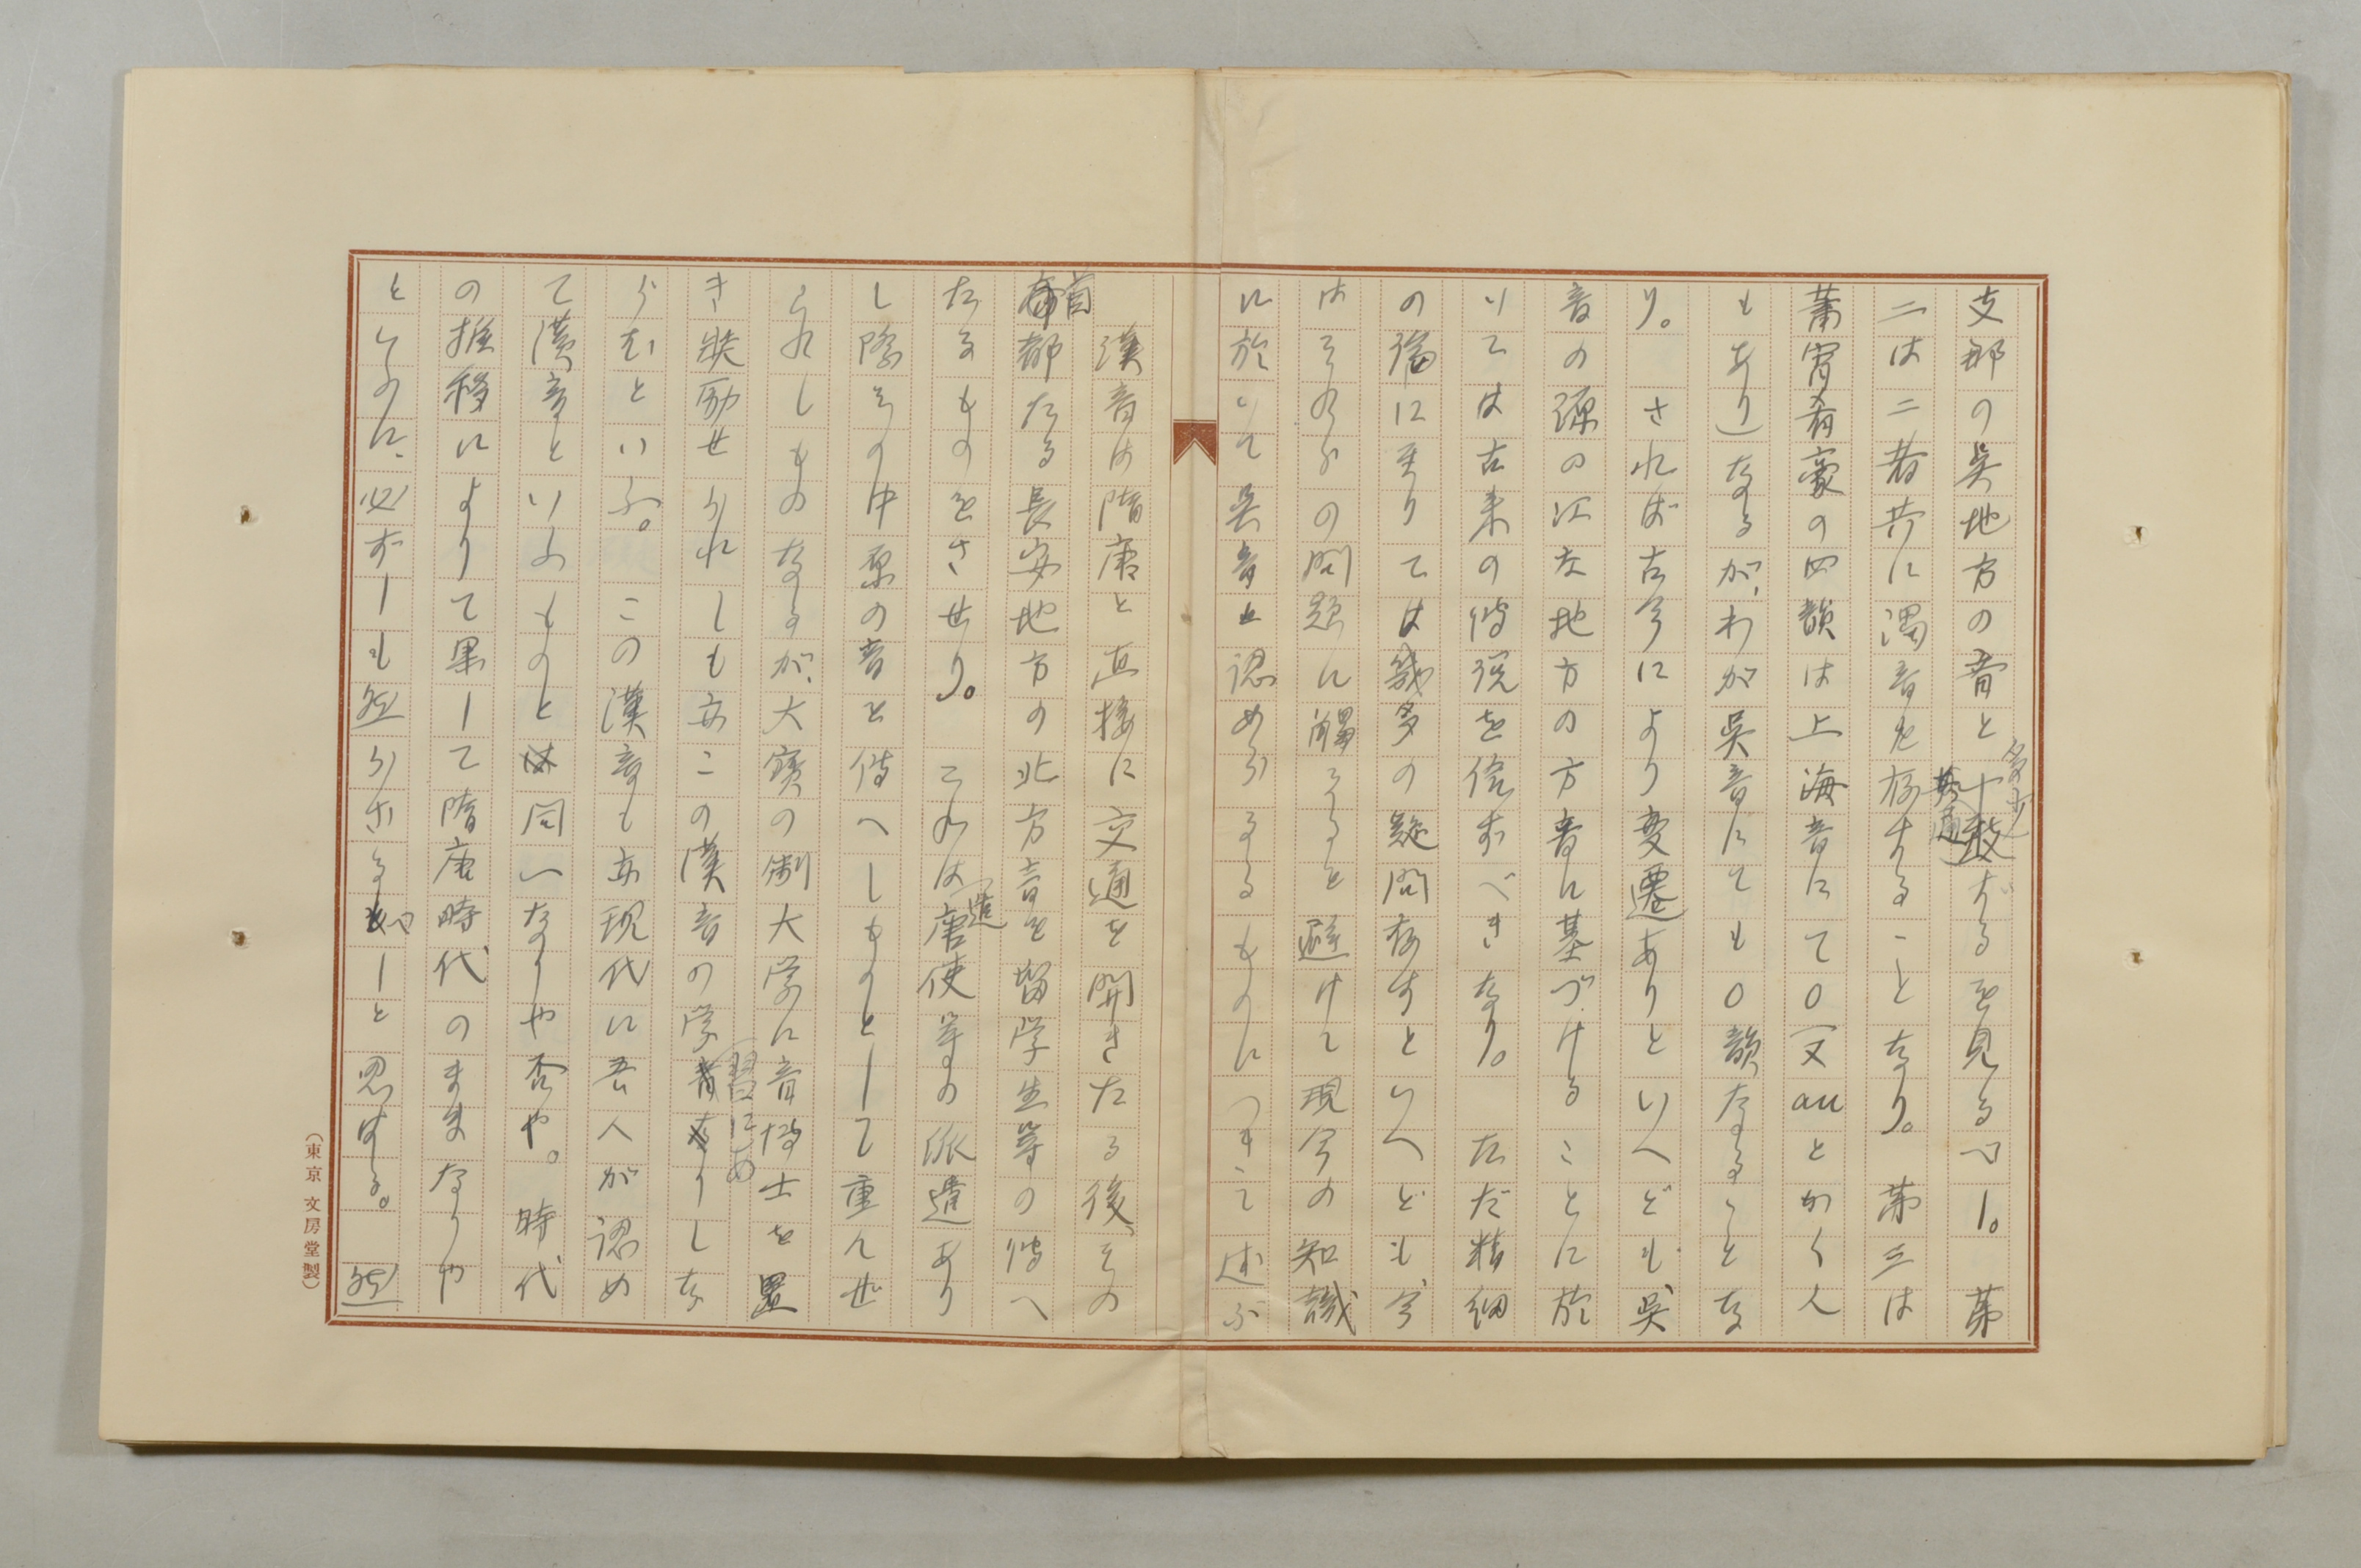 支那の呉地方の音と多少共通せるを見るべし。第
二は二者共に濁音を存することなり。第三は
蕭宵肴豪の四韻は上海音にてO(又auとかく人
もあり)なるが、わが呉音にてもO韻なることな
り。されば古今により変遷ありといへども、呉
音の源の江左地方の方音に基づけることに於
いては古来の伝説を信ずべきなり。ただ精細
の論に至りては幾多の疑問存すといへども、今
はそれらの問題に觸るゝを避けて現今の知識
に於いて呉音と認めらるるものにつきて述ぶ
漢音は隋唐と直接に交通を開きたる後、その
首都たる長安地方の北方音を留学生等の傳へ
たるものをさせり。これは遣唐使等の派遣あり
し際その中原の音を傳へしものとして重んぜ
られしものなるが、大寶の制大学に音博士を置
き奨励せられしも亦この漢音の学習にありしな
らむといふ。この漢音も亦現代に吾人が認め
て漢音といふものと同一なりや否や。時代
の推移によりて果して隋唐時代のままなりや
といふに、必ずしも然らざるべしと思はる。然
(東京 文房堂製)